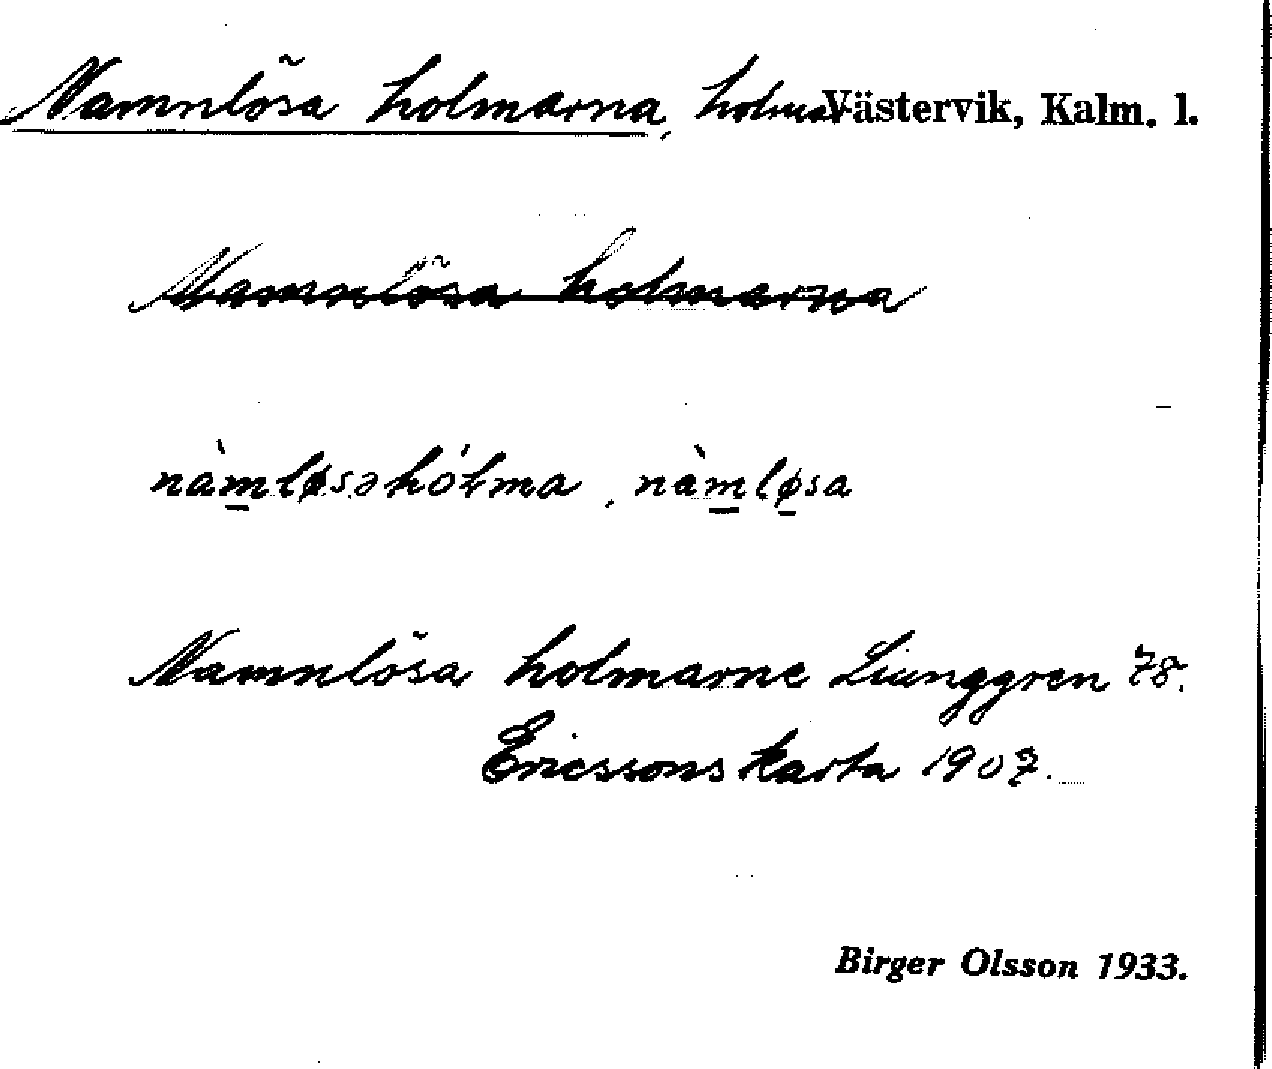 Namnlösa holmarna, holmar Västervik, Kalm. l.
Namnlösa holmarna
nàmløsəhólma, nàmløsa
Namnlösa holmarne Liunggren 78.
Ericssons karta 1907.
Birger Olsson 1933.